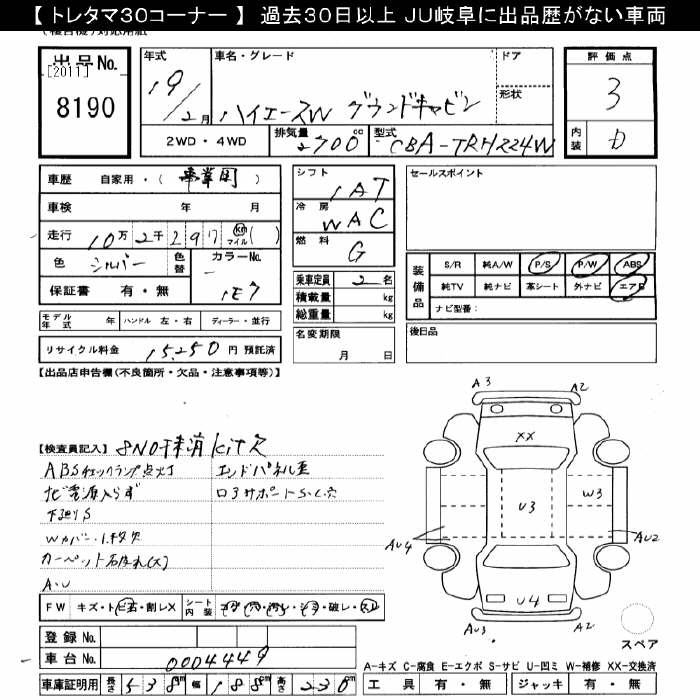 【 トレタマ30コーナー 】 過去30日以上 JU岐阜に出品歴がない車両
出品No.
[2011]
8190
年式
19/2月
車名・グレード
ハイエースW グランドキャビン
ドア
形状
2WD・4WD
排気量
2700cc
型式
CBA-TRH224W
評価点
3
内装
D
車歴 自家用・(事業用)
車検 年 月
走行 10万2千297 km マイル ( )
色 シルバー
色替
カラーNo.
1E7
保証書 有・無
モデル年式 年 ハンドル 左・右 ディーラー・並行
リサイクル料金 15,250円 預託済
シフト
1AT
冷房
WAC
燃料
G
乗車定員 2名
積載量 kg
総重量 kg
名変期限
月 日
セールスポイント
装備品
S/R 純A/W P/S P/W ABS
純TV 純ナビ 革シート 外ナビ エアB
ナビ型番:
後日品
【出品店申告欄(不良箇所・欠品・注意事項等)】
【検査員記入】
ABSチェックランプ点灯
下廻りS
A・U
FW キズ・トビ石・割レX
シート内装
登録No.
車台No. 0004449
車庫証明用 長さ 538cm 幅 188cm 高さ 230cm
A3
A2
XX
U3
W3
AU4
AU2
U4
AU3
A2
スペア
A-キズ C-腐食 E-エクボ S-サビ U-凹ミ W-補修 XX-交換済
工具 有・無 ジャッキ 有・無